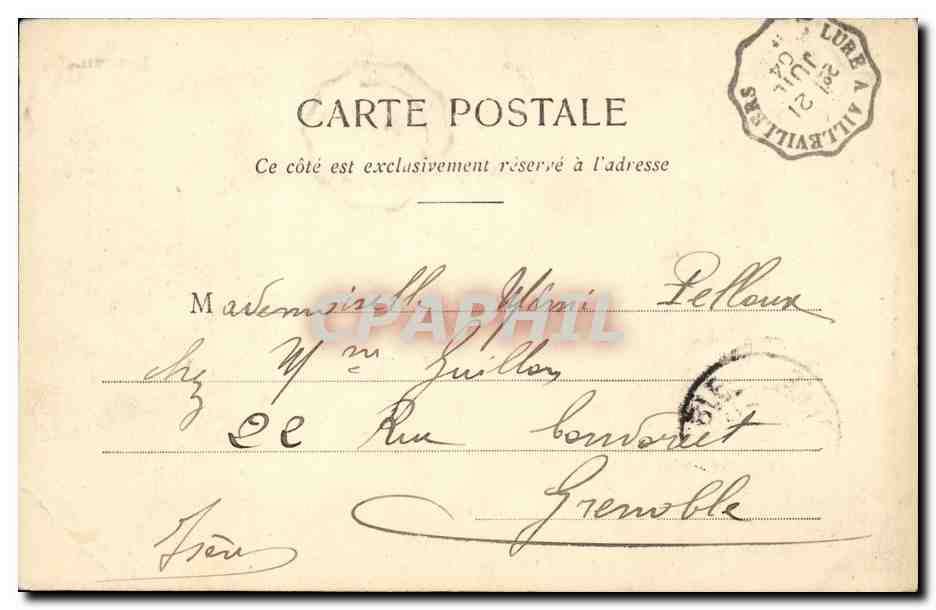 LURE A AILLEVILLERS
2º
21
JUIL
04
CARTE POSTALE
Ce côté est exclusivement réservé à l'adresse
Mademoiselle Mimi Pelloux
chez Mme Guillon
22 Rue Condorcet
Grenoble
Isère
CPAPHIL